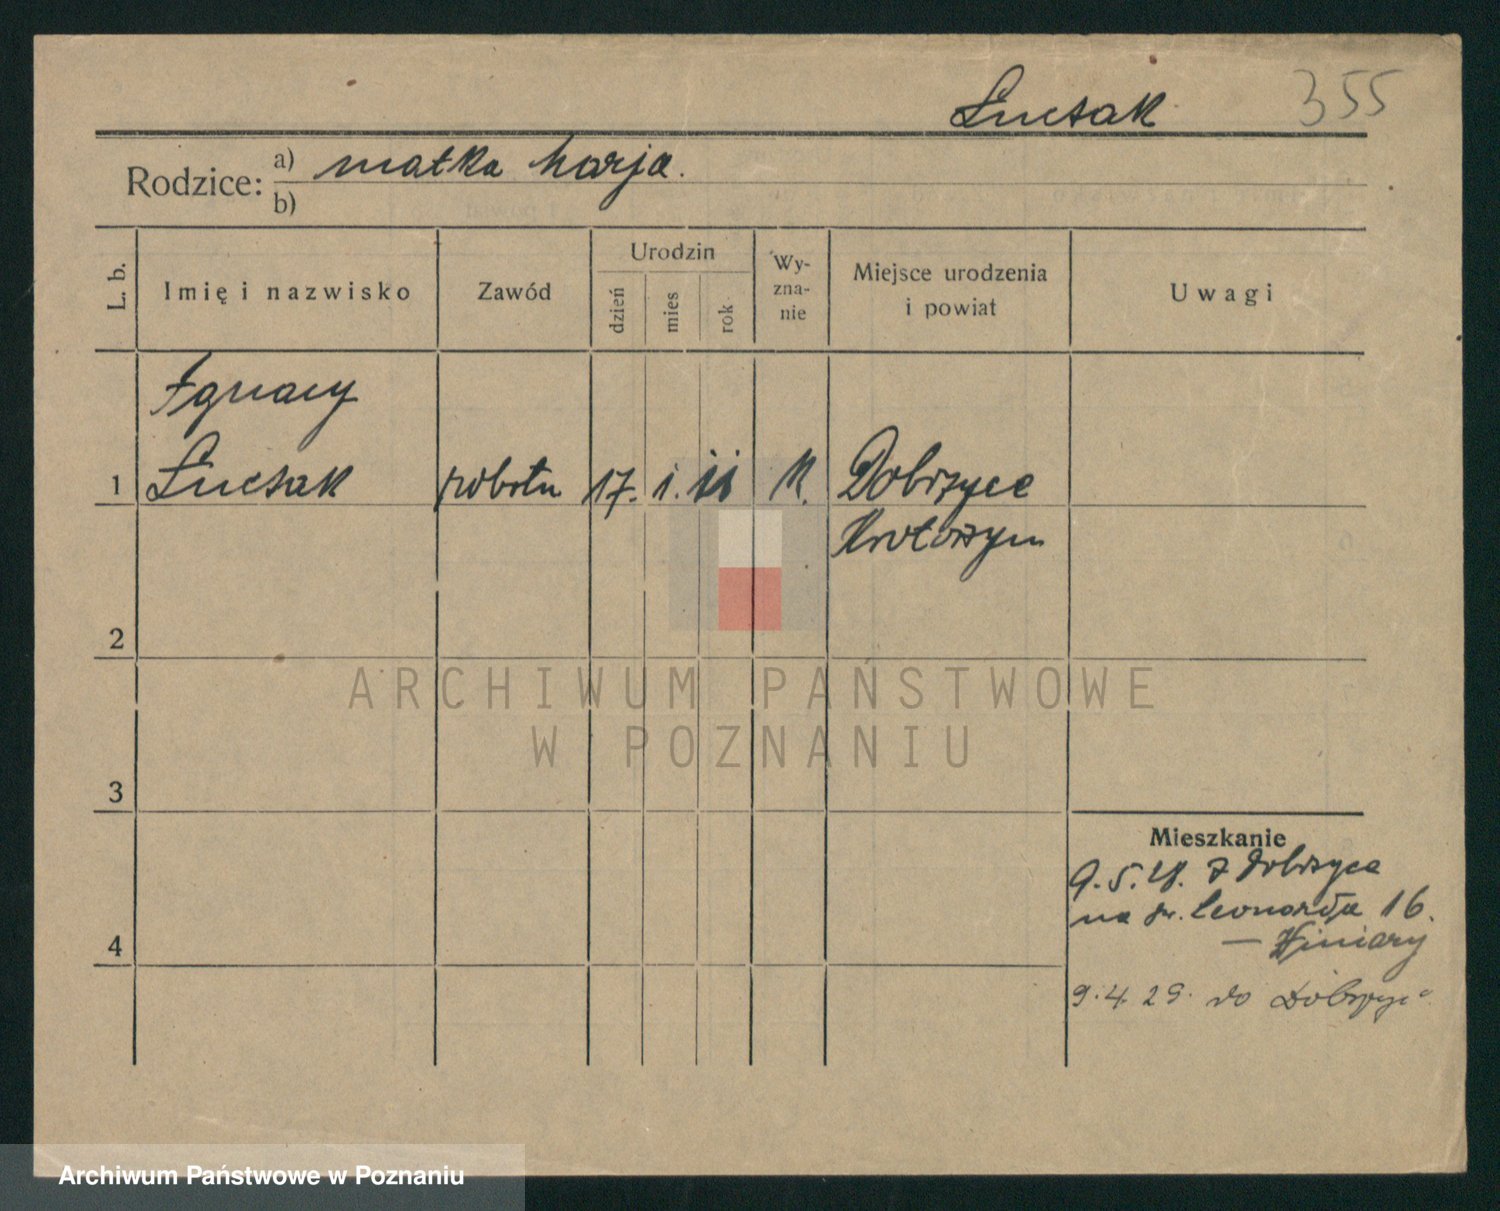 Łuczak 355
Rodzice: a) matka Marja.
b)
L. b. Imię i nazwisko Zawód Urodzin dzień mies rok Wy-zna-nie Miejsce urodzenia i powiat Uwagi
Ignacy
1 Łuczak robotn 17. 1. 11 K. Dobrzyce
Krotoszyn
2
ARCHIWUM PAŃSTWOWE
W POZNANIU
3
Mieszkanie
9.5.28. z Dobrzyca
na św. Leonarda 16.
4 — Winiary
9.4.29. do Dobrzyc
Archiwum Państwowe w Poznaniu